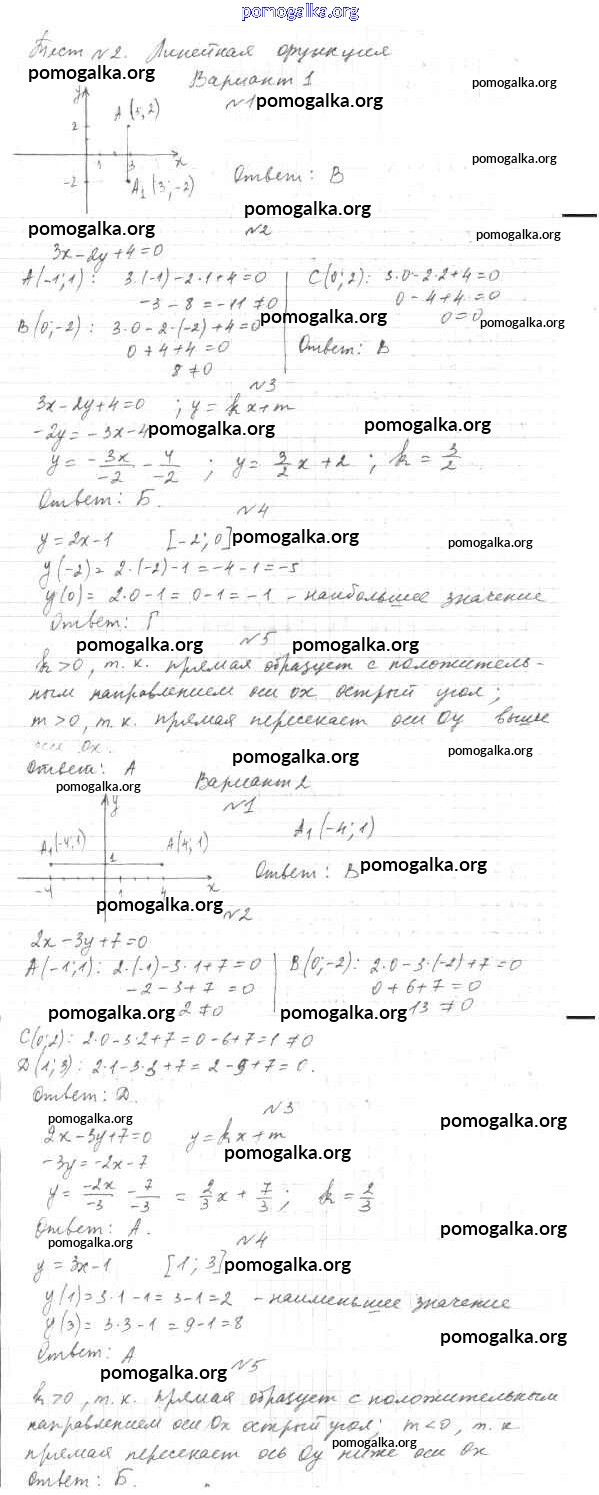 pomogalka.org
Тест №2. Линейная функция
pomogalka.org
Вариант 1
pomogalka.org
№1
pomogalka.org
y
A (3; 2)
2
1 3 x
-2
A₁ (3; -2)
pomogalka.org
Ответ: В
pomogalka.org
pomogalka.org
№2
pomogalka.org
3x-2y+4=0
A(-1; 1): 3·(-1)-2·1+4=0
-3-8=-11≠0
B(0;-2): 3·0-2·(-2)+4=0
pomogalka.org
0+4+4=0
8≠0
C(0; 2): 3·0-2·2+4=0
0-4+4=0
0=0
pomogalka.org
Ответ: В
№3
3x-2y+4=0 ; y=kx+m
-2y=-3x-4
pomogalka.org
pomogalka.org
y= -3x/-2 - 4/-2 ; y= 3/2 x+2 ; k= 3/2
Ответ: Б.
№4
y=2x-1 [-2; 0]
pomogalka.org
pomogalka.org
y(-2)=2·(-2)-1=-4-1=-5
y(0)=2·0-1=0-1=-1 - наибольшее значение
Ответ: Г
№5
pomogalka.org
pomogalka.org
k>0, т.к. прямая образует с положитель-
ным направлением оси ox острый угол;
m>0, т.к. прямая пересекает оси Oy выше
оси Ox.
pomogalka.org
pomogalka.org
Ответ: А
Вариант 2
pomogalka.org
№1
y
A₁(-4; 1) A(4; 1)
1
-4 1 4 x
A₁(-4; 1)
Ответ: В
pomogalka.org
pomogalka.org
№2
2x-3y+7=0
A(-1; 1): 2·(-1)-3·1+7=0
-2-3+7=0
pomogalka.org
2≠0
B(0;-2): 2·0-3·(-2)+7=0
0+6+7=0
pomogalka.org
13≠0
C(0; 2): 2·0-3·2+7=0-6+7=1≠0
D(1; 3): 2·1-3·3+7=2-9+7=0.
Ответ: D.
№3
pomogalka.org
pomogalka.org
2x-3y+7=0 y=kx+m
pomogalka.org
-3y=-2x-7
y= -2x/-3 - 7/-3 = 2/3 x+ 7/3 ; k= 2/3
Ответ: А.
pomogalka.org
№4
pomogalka.org
y=3x-1 [1; 3]
pomogalka.org
y(1)=3·1-1=3-1=2 - наименьшее значение
y(3)=3·3-1=9-1=8
pomogalka.org
Ответ: А
№5
pomogalka.org
k>0, т.к. прямая образует с положительным
направлением оси Ox острый угол; m<0, т.к
pomogalka.org
прямая пересекает ось Oy ниже оси Ox
Ответ: Б.